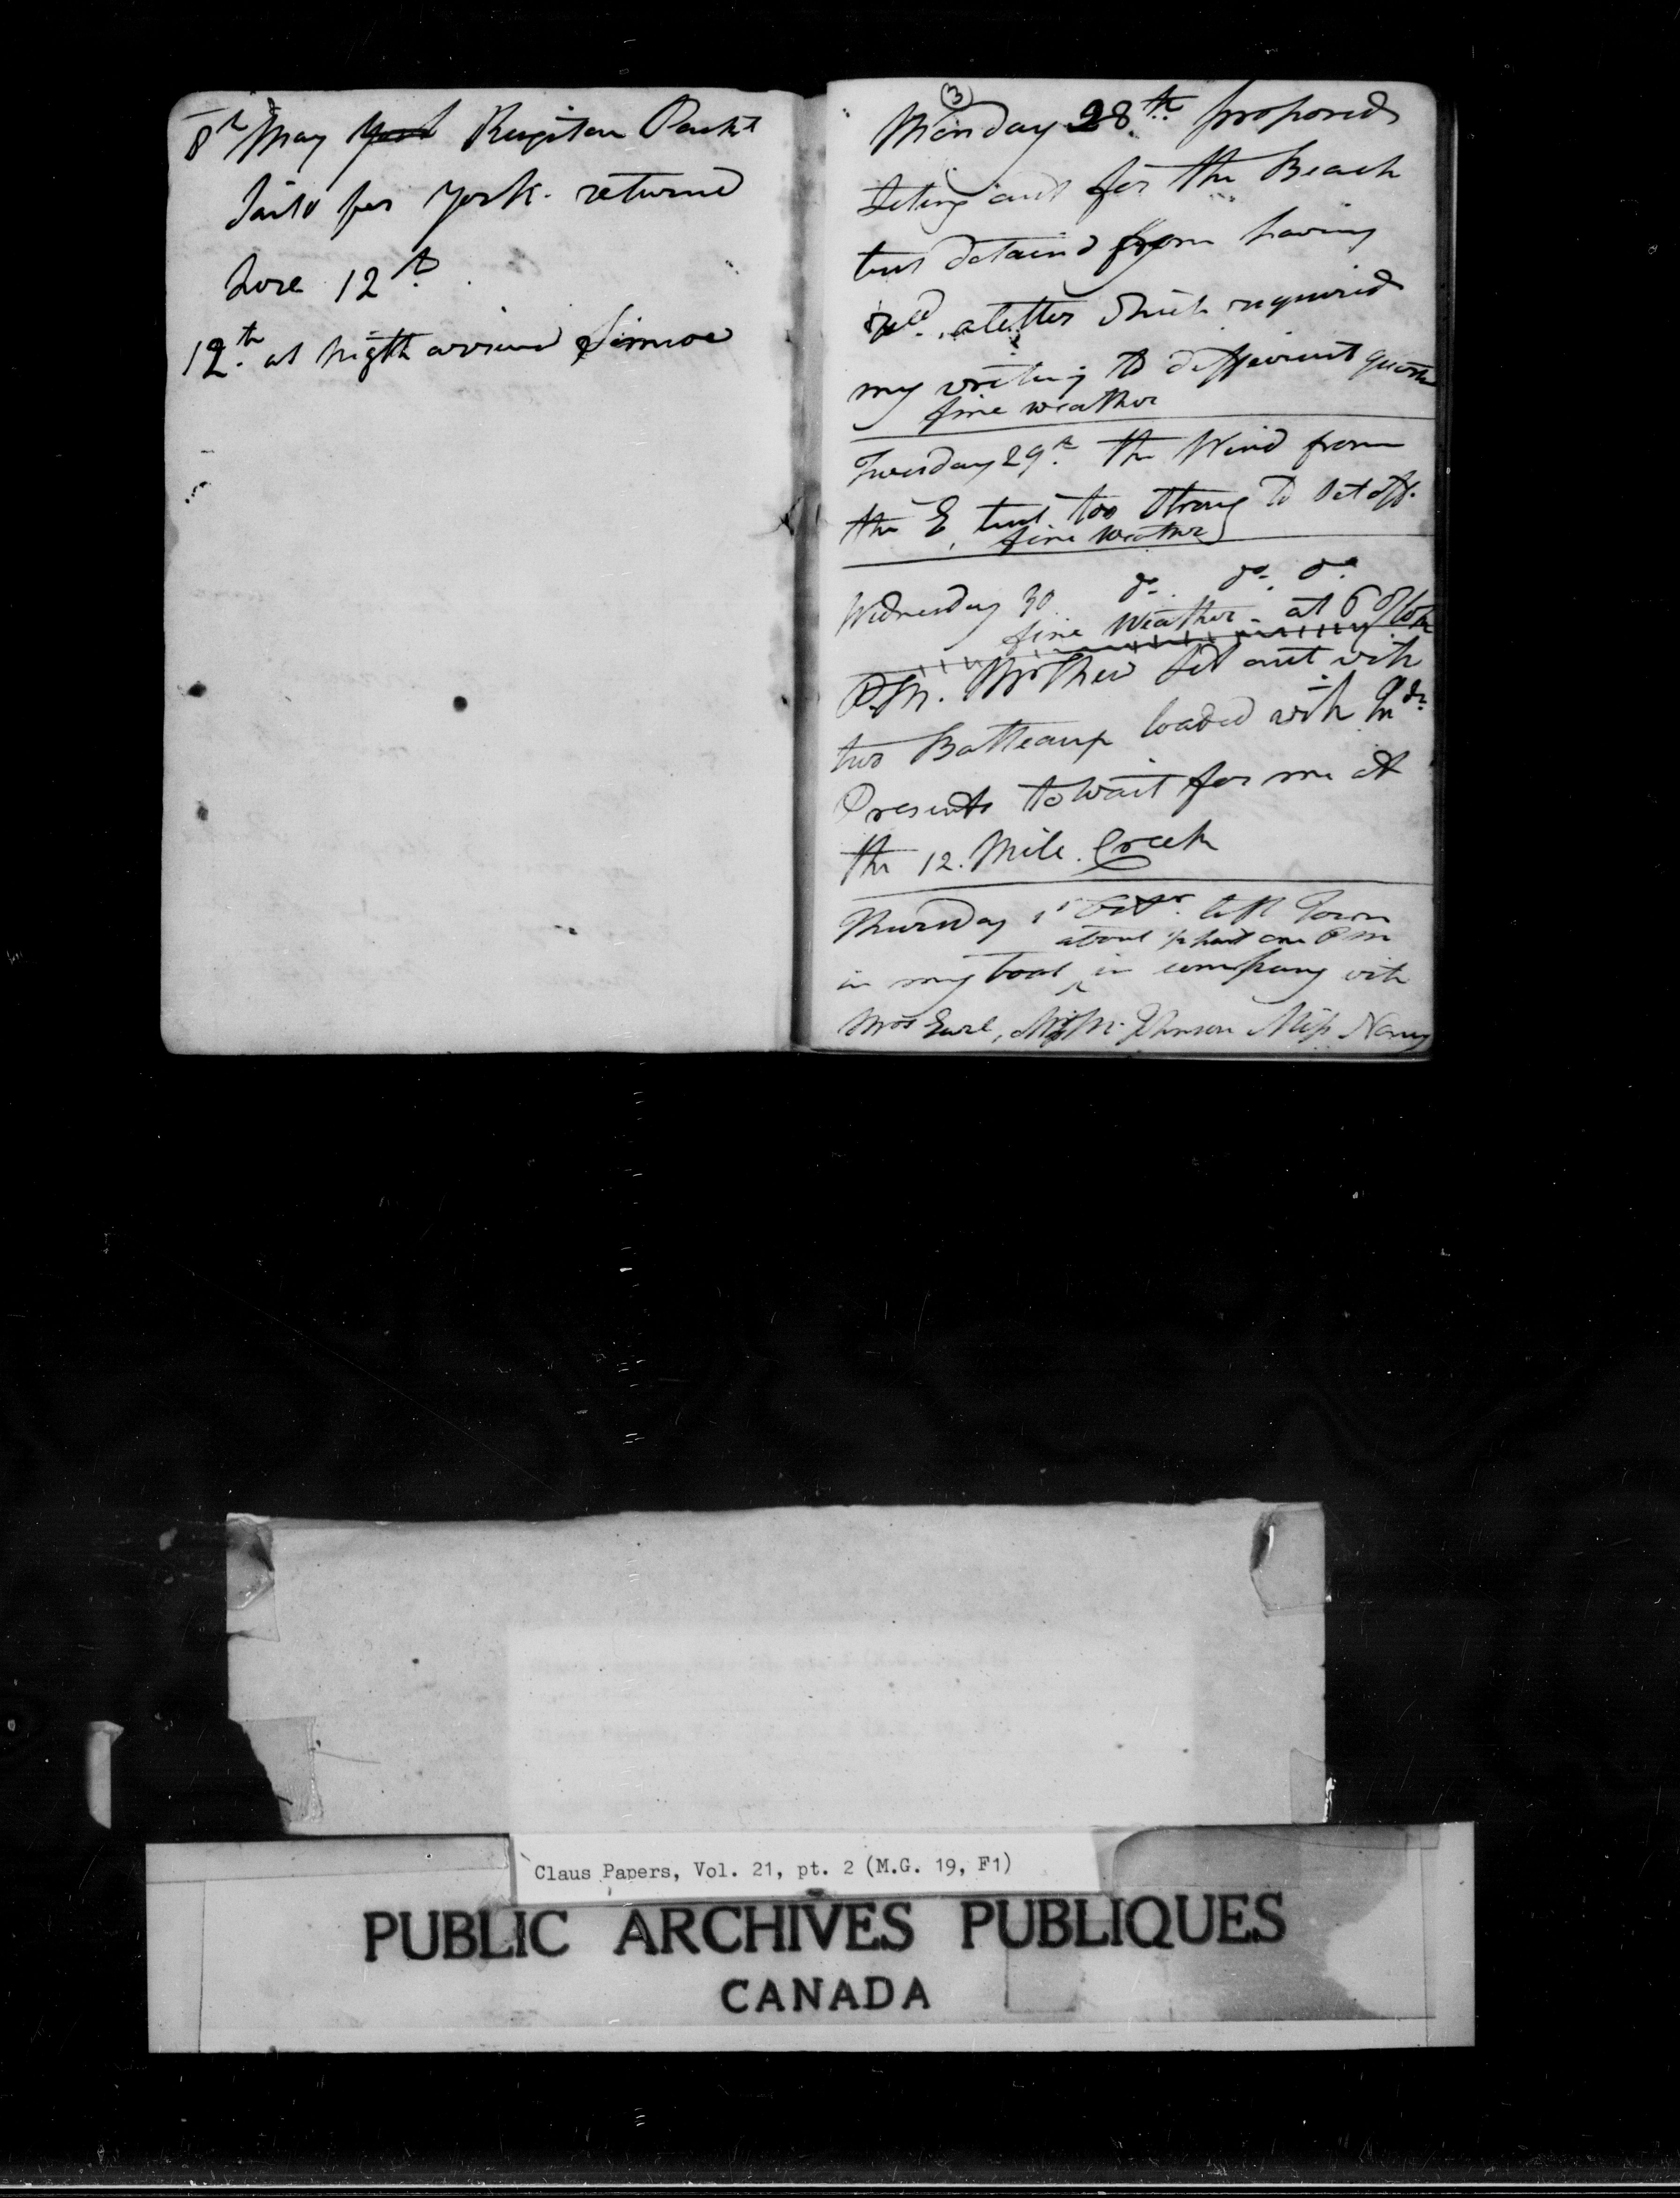 8th May York Kingston Packt
Sail'd for York. returnd
here 12th
12th at nigth arrived Simcoe
(3)
Monday 28th proposed
Seting out for the Beach
but detaind from having
recd a letter which required
my writing to different quarter
fine weather
Tuesday 29th the Wind from
the E but too Strong to Set off.
fine Weather
Wednesday 30 do. do. do.
fine Weather - at 6 oClock
P.M. Brother Set out with
two Batteaux loaded with Indn
Presents to wait for me at
the 12. Mile. Creek
Thursday 1st Octr. left Town
about ½ past one P M
in my boat in company with
Mrs Earl, M. Johnson Miss Nancy
Claus Papers, Vol. 21, pt. 2 (M.G. 19, F1)
PUBLIC ARCHIVES PUBLIQUES
CANADA